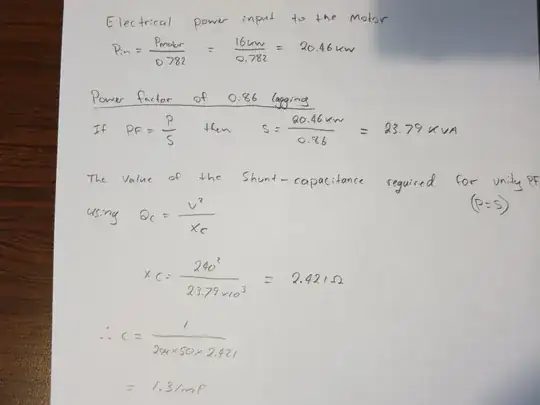 Electrical power input to the motor
Pin = Pmotor/0.782 = 16kW/0.782 = 20.46 kW
Power factor of 0.86 lagging
If PF = P/S then S = 20.46 kW/0.86 = 23.79 KVA
The Value of the Shunt-capacitance required for unity PF
(P=S)
using Qc = V²/Xc
Xc = 240²/23.79x10³ = 2.421Ω
∴ C = 1/2πx50x2.421
= 1.31mF